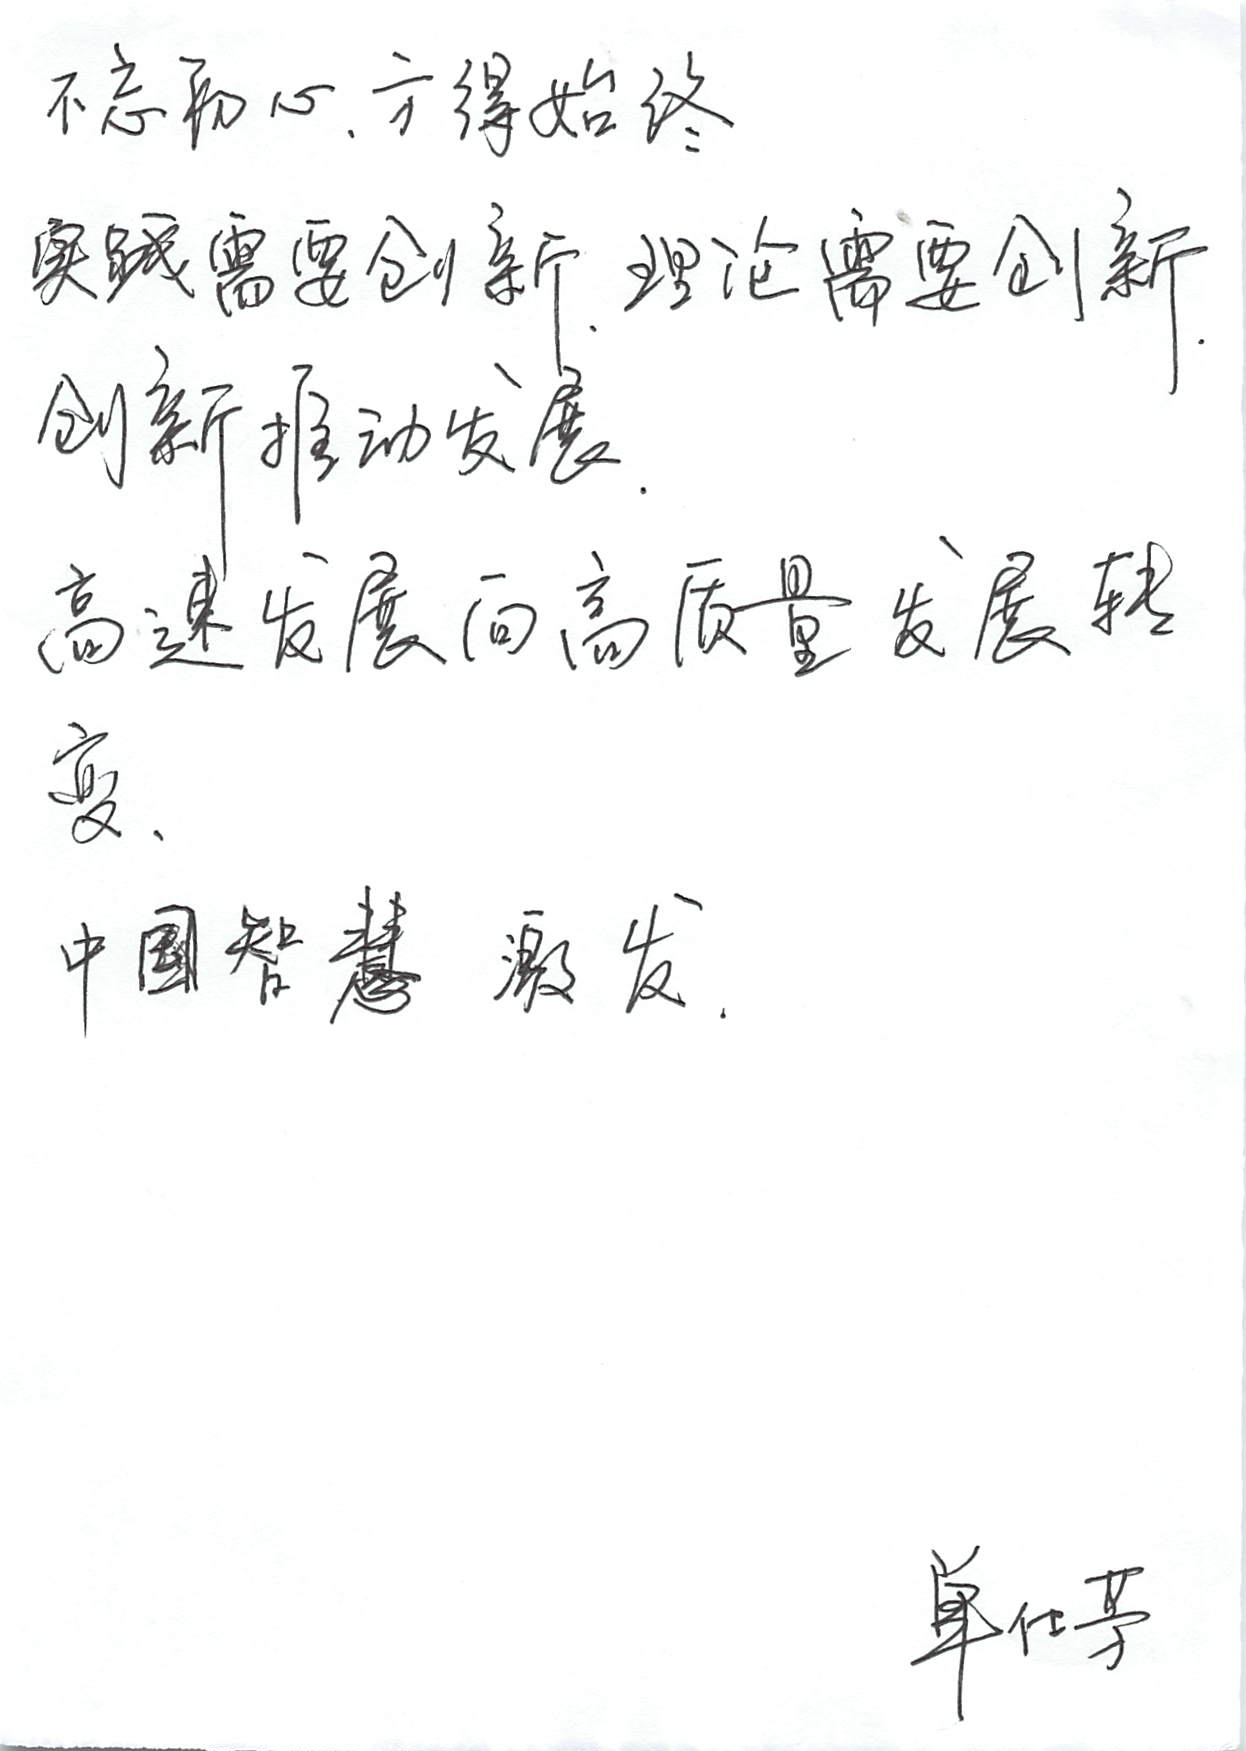 不忘初心、方得始终
实践需要创新.理论需要创新.
创新推动发展.
高速发展向高质量发展转
变、
中国智慧 激发.
单仕芳